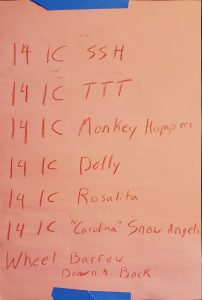 14 IC SSH
14 IC TTT
14 IC Monkey Humpers
14 IC Dolly
14 IC Rosalita
14 IC "Carolina" Snow Angels
Wheel Barrow
Down & Back